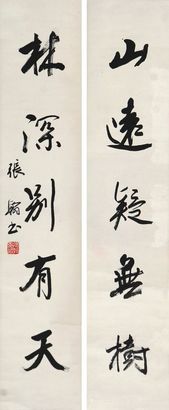 山遠疑無樹
林深別有天
張瀚書